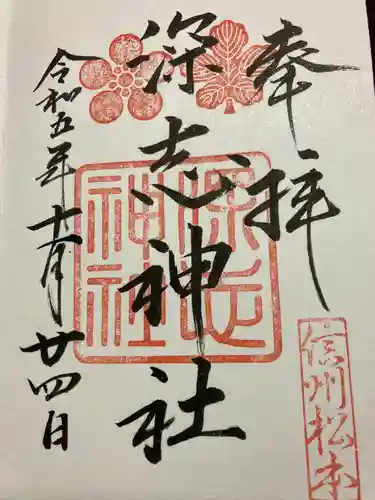 奉拝
信州松本
深志神社
深志
神社
令和五年十一月廿四日